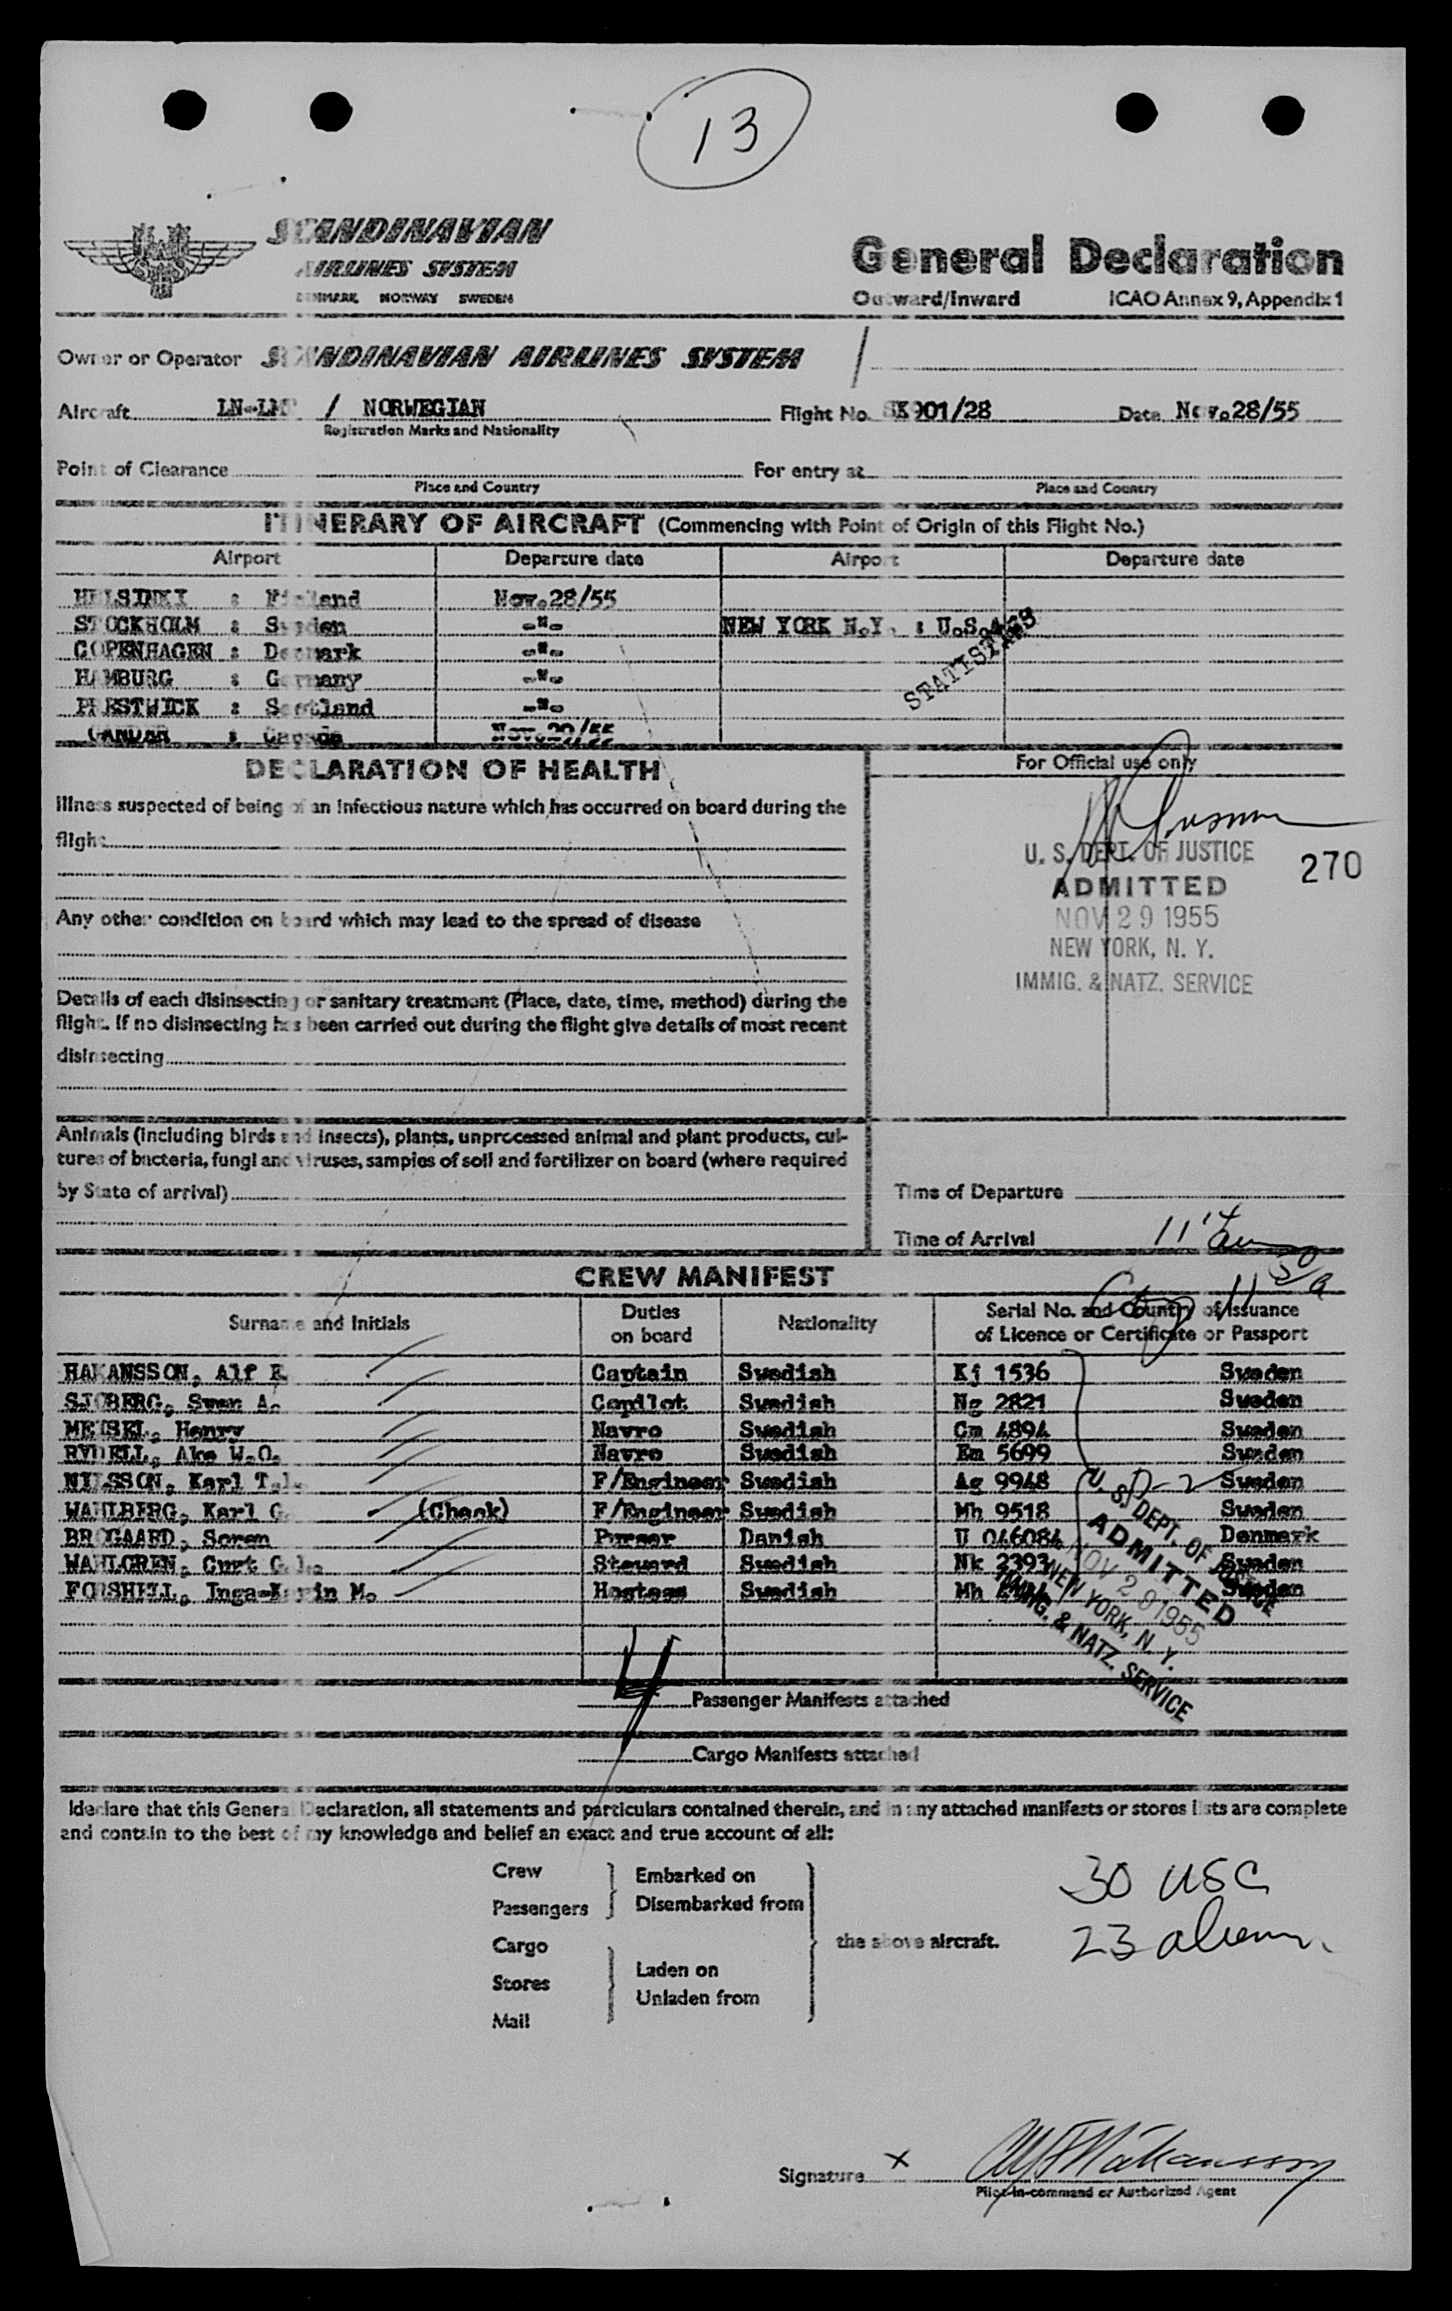 13
SCANDINAVIAN
AIRLINES SYSTEM
DENMARK NORWAY SWEDEN
General Declaration
Outward/Inward ICAO Annex 9, Appendix 1
Owner or Operator SCANDINAVIAN AIRLINES SYSTEM
Aircraft LN-LM / NORWEGIAN Flight No. SK901/28 Date Nov.28/55
Registration Marks and Nationality
Point of Clearance For entry at
Place and Country Place and Country
ITINERARY OF AIRCRAFT (Commencing with Point of Origin of this Flight No.)
Airport Departure date Airport Departure date
HELSINKI : Finland Nov.28/55
STOCKHOLM : Sweden -"- NEW YORK N.Y. : U.S.A.
COPENHAGEN : Denmark -"-
HAMBURG : Germany -"-
PRESTWICK : Scotland -"-
GANDER : Canada Nov.29/55
STATISTICS
DECLARATION OF HEALTH
For Official use only
Illness suspected of being of an infectious nature which has occurred on board during the
flight
U. S. DEPT. OF JUSTICE
270
ADMITTED
NOV 29 1955
NEW YORK, N. Y.
IMMIG. & NATZ. SERVICE
Any other condition on board which may lead to the spread of disease
Details of each disinsecting or sanitary treatment (Place, date, time, method) during the
flight. If no disinsecting has been carried out during the flight give details of most recent
disinsecting
Animals (including birds and insects), plants, unprocessed animal and plant products, cul-
tures of bacteria, fungi and viruses, samples of soil and fertilizer on board (where required
by State of arrival)
Time of Departure
Time of Arrival 11
CREW MANIFEST
Surname and Initials Duties on board Nationality Serial No. and Country of Issuance of Licence or Certificate or Passport
HAKANSSON, Alf E. Captain Swedish Kj 1536 Sweden
SJOBERG, Sven A. Copilot Swedish Ng 2821 Sweden
MEISEL, Henry Navro Swedish Cm 4894 Sweden
RYDELL, Ake W.O. Navro Swedish Em 5699 Sweden
NILSSON, Karl T.L. F/Engineer Swedish Ag 9948 D-2 Sweden
WAHLBERG, Karl G. (Check) F/Engineer Swedish Mh 9518 Sweden
BROGAARD, Soren Purser Danish U 046084 Denmark
WAHLGREN, Curt G.L. Steward Swedish Nk 2393 Sweden
FORSHELL, Inga-Karin M. Hostess Swedish Mh Sweden
U. S. DEPT. OF JUSTICE
ADMITTED
NOV 29 1955
NEW YORK, N. Y.
IMMIG. & NATZ. SERVICE
4 Passenger Manifests attached
Cargo Manifests attached
I declare that this General Declaration, all statements and particulars contained therein, and in any attached manifests or stores lists are complete
and contain to the best of my knowledge and belief an exact and true account of all:
Crew
Passengers
Embarked on
Disembarked from
Cargo
Stores
Mail
Laden on
Unladen from
the above aircraft.
30 USC
23 aliens
Signature x Alf Håkansson
Pilot-in-command or Authorized Agent